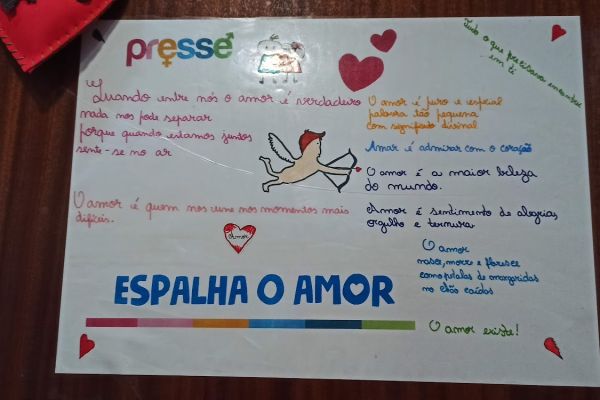 presse
Tudo o que precisava encontrei
em ti
Quando entre nós o amor é verdadeiro
nada nos pode separar
porque quando estamos juntos
sente-se no ar
O amor é puro e especial
palavra tão pequena
com significado divinal
Amar é admirar com o coração
O amor é a maior beleza
do mundo.
Amor é sentimento de alegria,
orgulho e ternura
O amor é quem nos une nos momentos mais
difíceis.
Amor
O amor
nasce, morre e floresce
como pétalas de margaridas
no chão caídas
ESPALHA O AMOR
O amor existe!